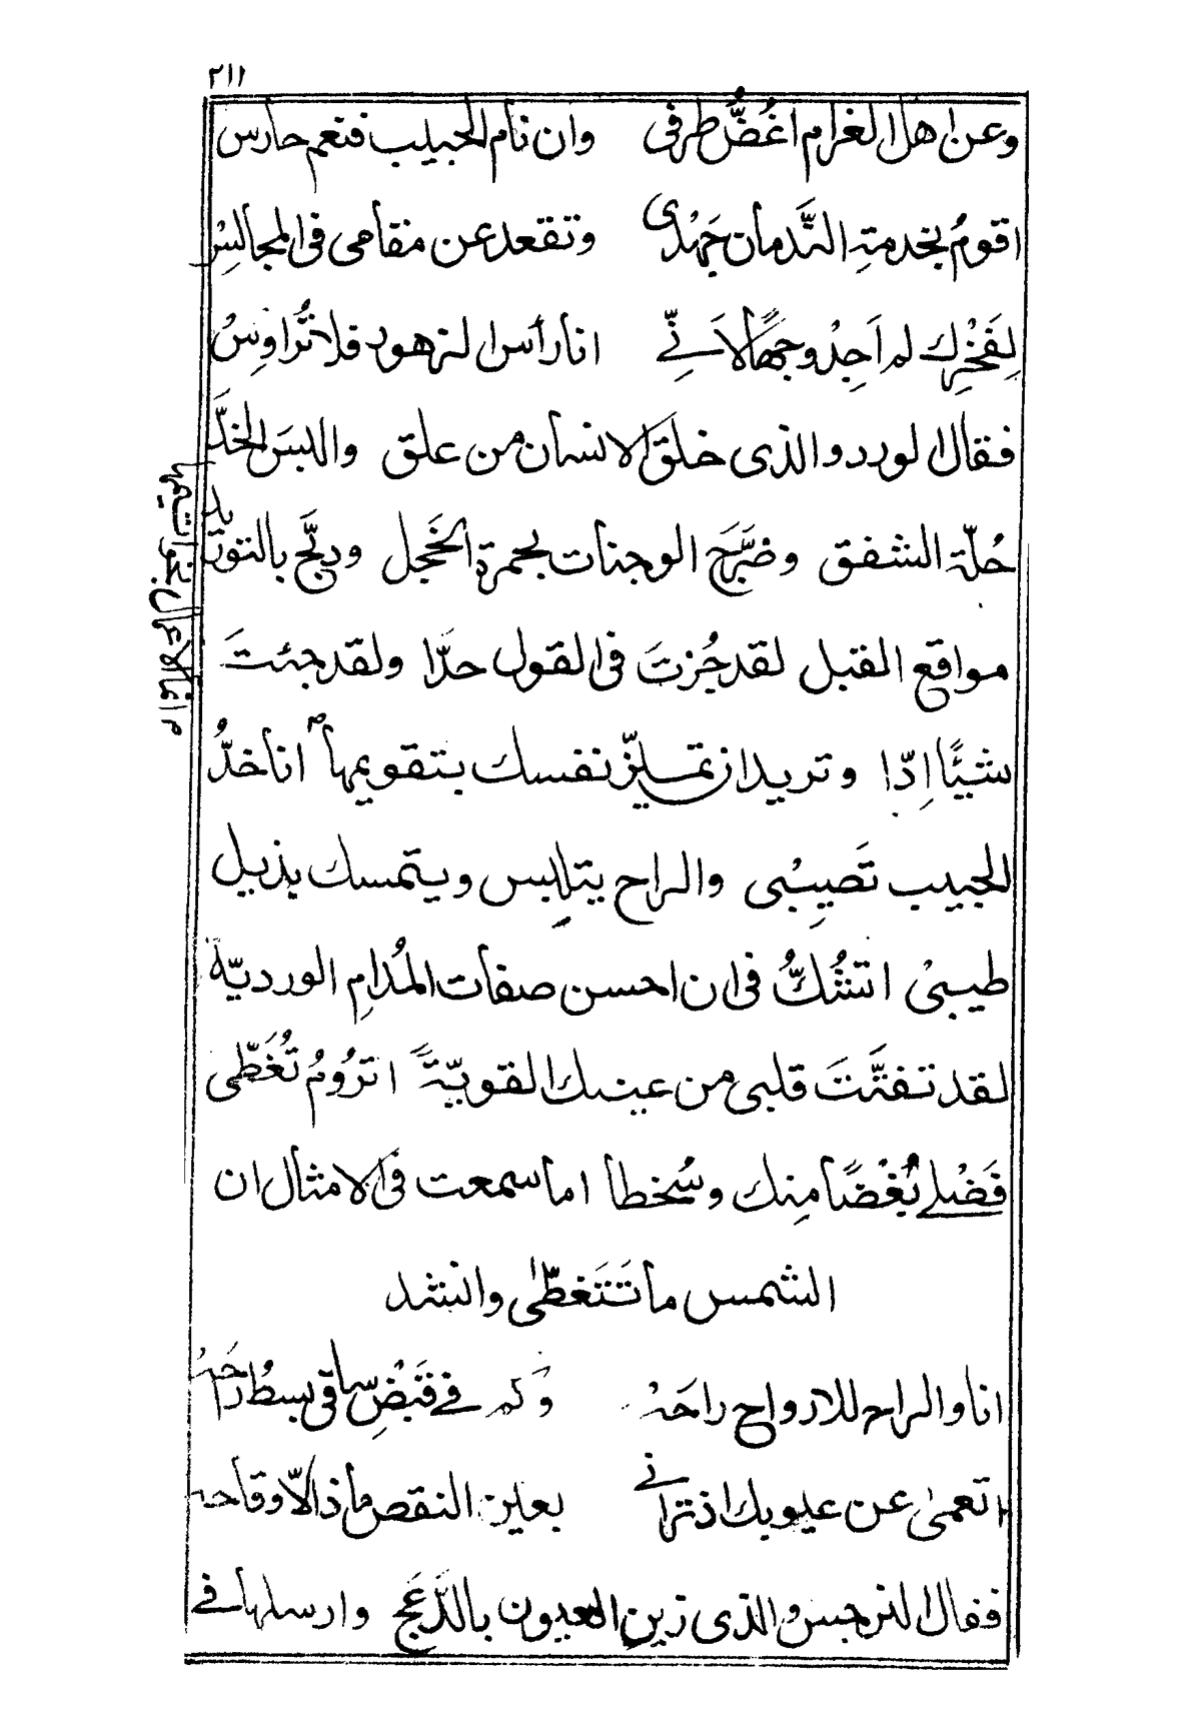 ٢١١
وعن اهل الغرام اغُضُّ طرفى وان نام الحبيب فنعم حارس
اقومُ بخدمتِه النَّدمان جَهْدى وتقعد عن مقامى فى المجالسِ
لِفَخْرِك لم اَجِدْ وجهًا لاَنِّے انا رأس الزهور فلا تُراوِسُ
فقال الورد والذى خلق الانسان من علق والبسَ الخدَّ
حُلّة الشفق وضرَّجَ الوجنات بجمرة الخَجل ودبَّج بالتوريد
مواقع القبل لقد جُزتَ فى القول حدّا ولقد جئتَ
شيئًا اِدّا وتريد ان تميّز نفسك بتقويمها م انا خدُّ
الحبيب نَصِيبْى والراح يتلبس ويتمسك بذيل
طيبىْ اتشُكُّ فى ان احسن صفات المُدامِ الورديّة
لقد تفتَّتَ قلبى من عينك القويّةَ اترُومُ تُغَطّى
فَضْلے بُغْضًا مِنك وسُخطا اما سمعت فى الامثال ان
الشمس ما تَتَغطّى وانشد
انا والراح للارواح راحَهْ وَكم فے قَبْضِ ساقى بسطُ راحَهْ
اتعمىٰ عن عيوبك اذ ترانے بعين النقص ما ذا الّا وقاحه
فقال النرجس والذى زين العيون بالدَّعَج وارسلها فے
م انما الاعمال بخواتيمها